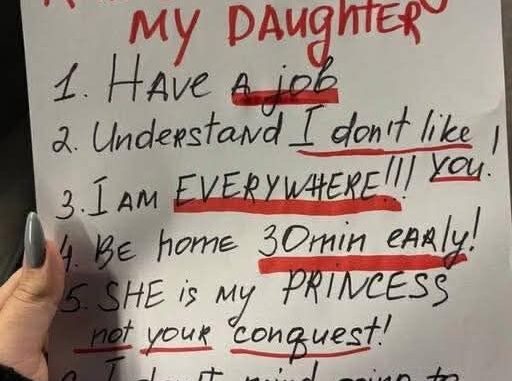 MY DAUGHTER
1. HAVE A job
2. Understand I don't like YOU!
3. I AM EVERYWHERE!!!
4. BE home 30min EARLY!
5. SHE is my PRINCESS
not your conquest!
I don't mind going to